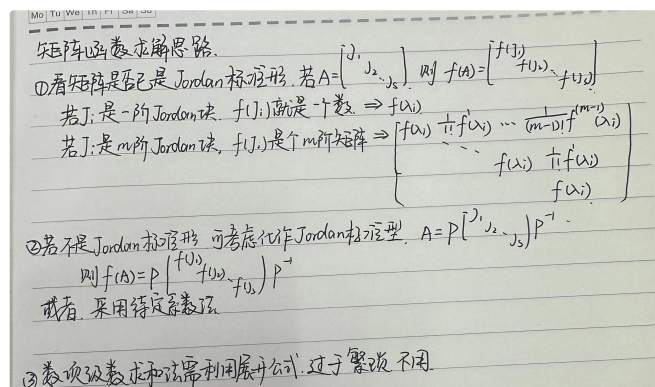 Mo Tu We Th Fri Sa Su
矩阵函数求解思路.
①看矩阵是否已是Jordan标准形. 若A=[J₁ J₂ ⋱ Jₛ] 则 f(A)=[f(J₁) f(J₂) ⋱ f(Jₛ)]
若Jᵢ是一阶Jordan块. f(Jᵢ)就是一个数. ⇒ f(λᵢ)
若Jᵢ是m阶Jordan块, f(Jᵢ)是个m阶矩阵 ⇒ [f(λᵢ) 1/1! f'(λᵢ) ⋯ 1/(m-1)! f^(m-1)(λᵢ)
⋱ f(λᵢ) 1/1! f'(λᵢ)
f(λᵢ)]
②若不是Jordan标准形 可考虑化作Jordan标准型. A=P[J₁ J₂ ⋱ Jₛ]P⁻¹.
则f(A)=P[f(J₁) f(J₂) ⋱ f(Jₛ)]P⁻¹
或者, 采用待定系数法
③数项级数求和法需利用展开公式. 过于繁琐 不用